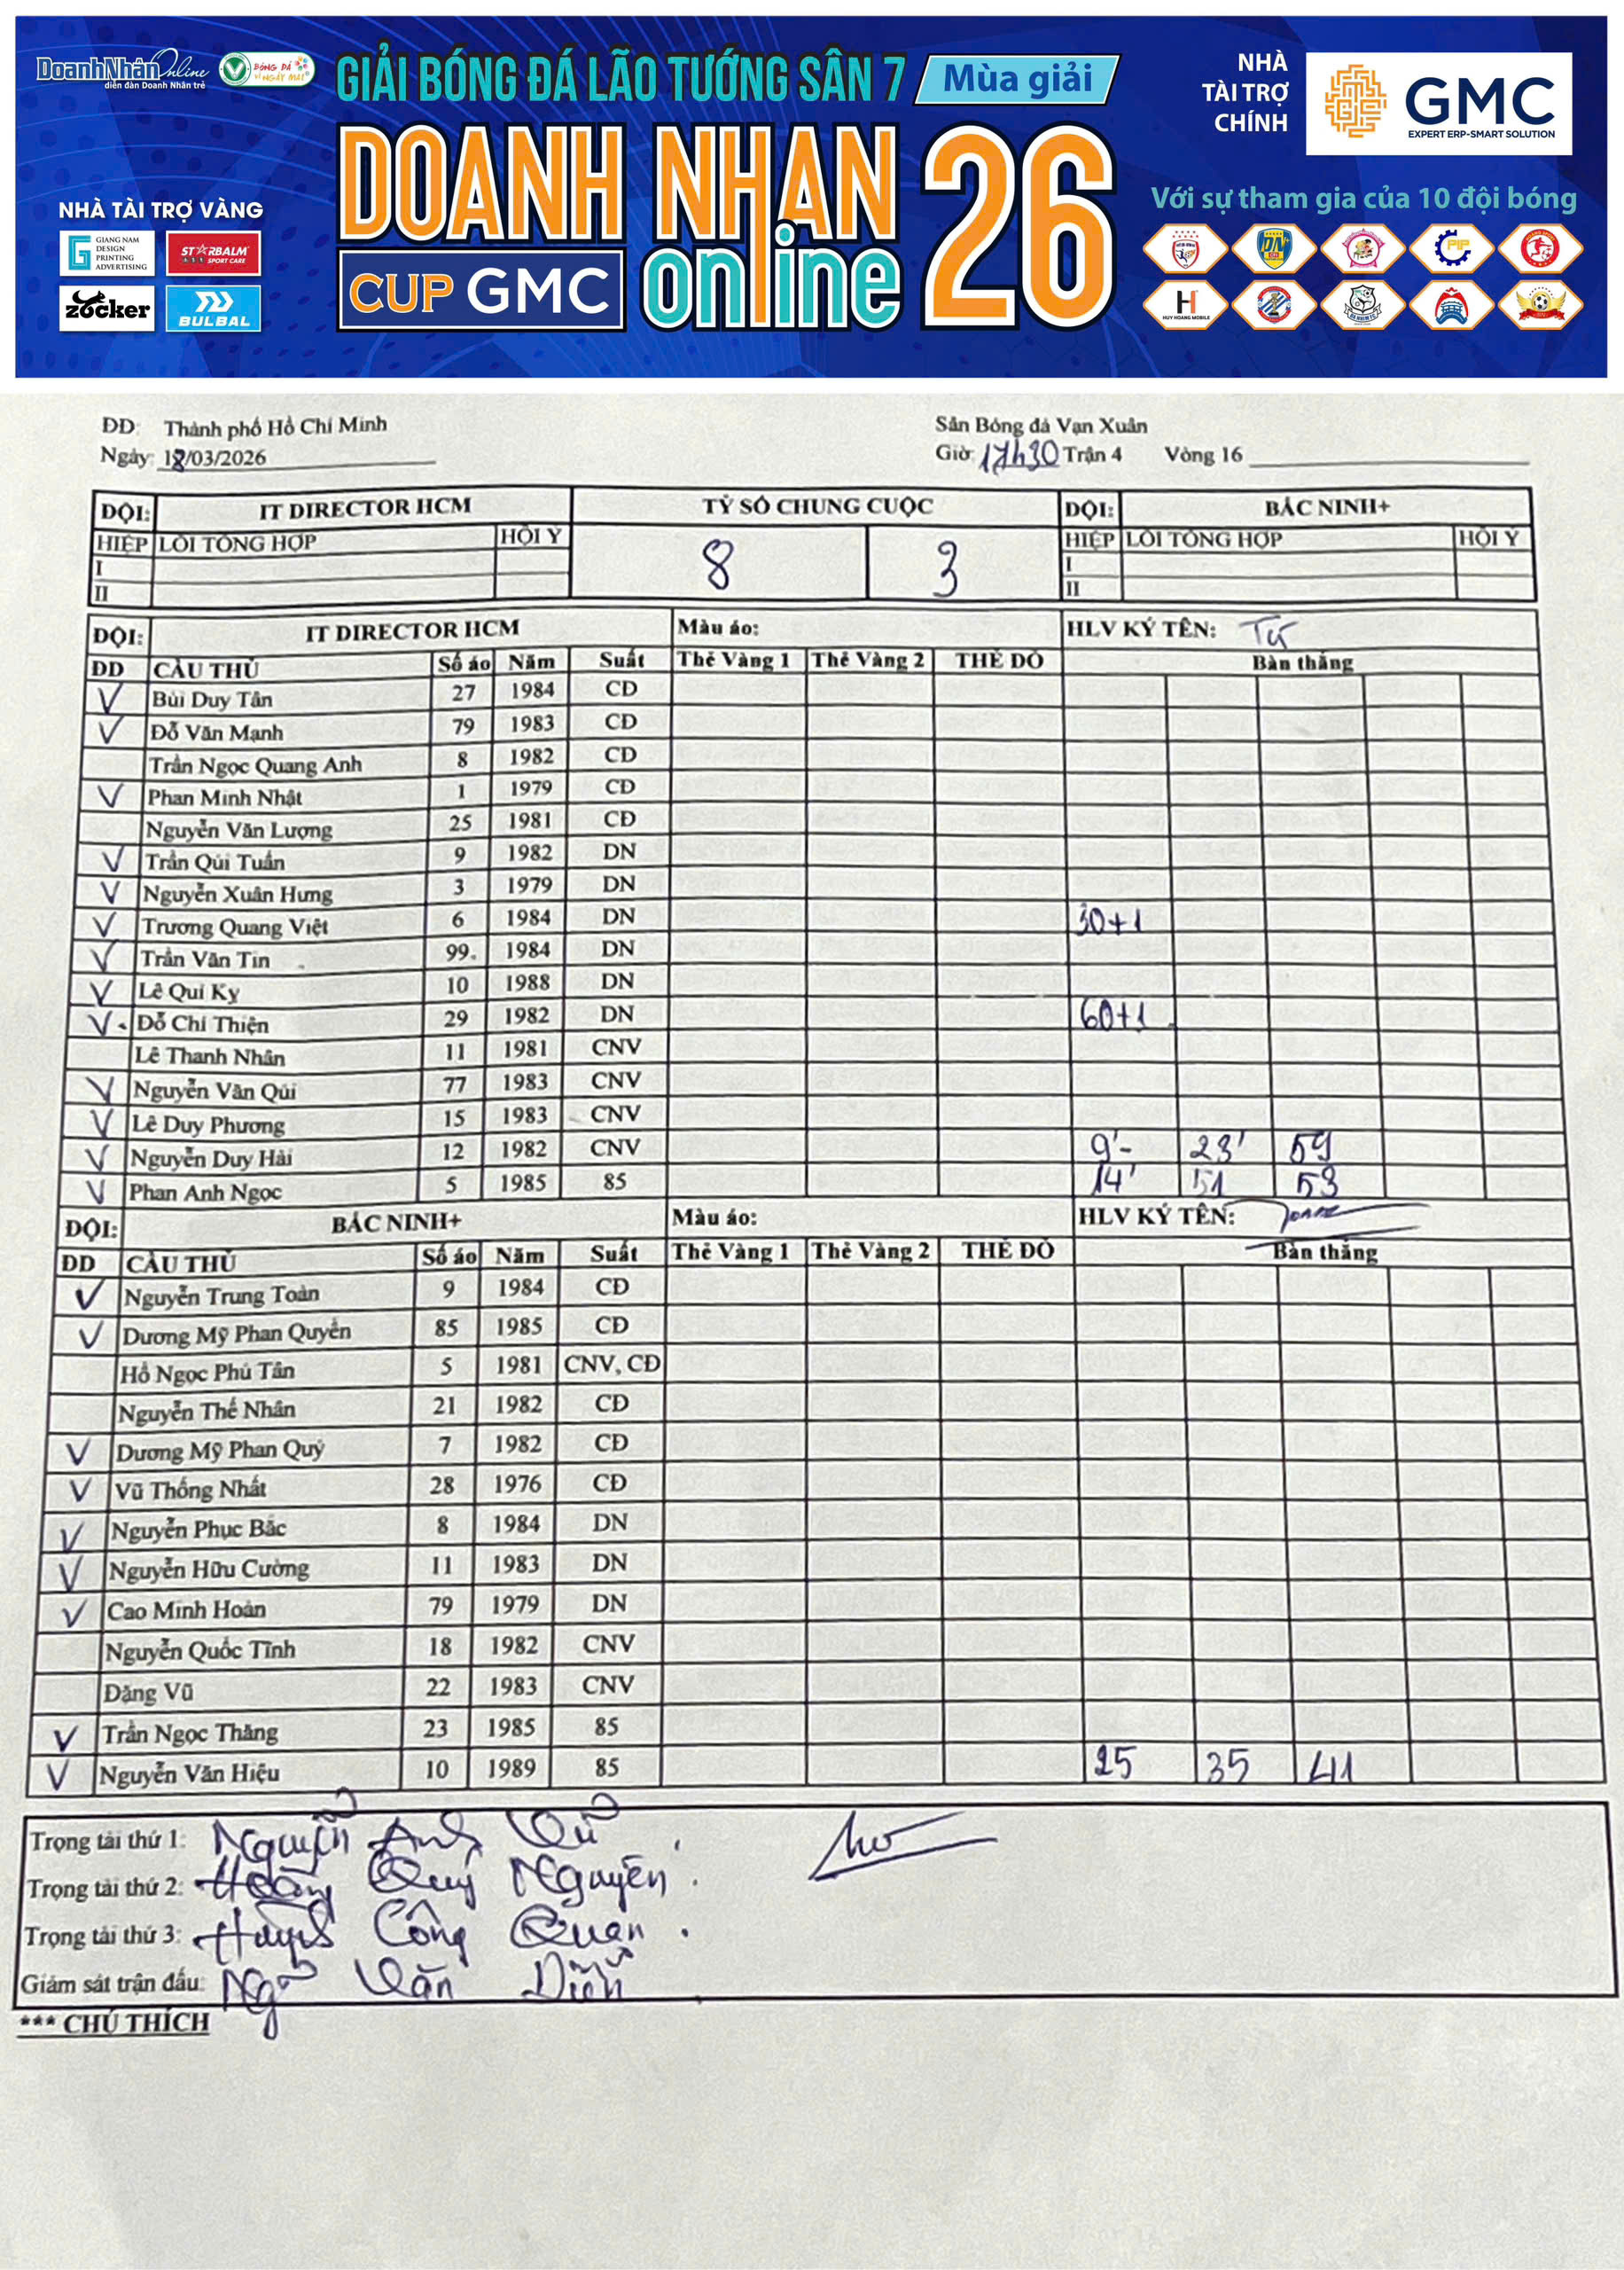 DoanhNhân Online
diễn đàn Doanh Nhân trẻ
BÓNG ĐÁ
VÌ NGÀY MAI
GIẢI BÓNG ĐÁ LÃO TƯỚNG SÂN 7 Mùa giải
DOANH NHAN 26
CUP GMC online
NHÀ TÀI TRỢ CHÍNH
GMC
EXPERT ERP-SMART SOLUTION
NHÀ TÀI TRỢ VÀNG
GIANG NAM DESIGN PRINTING ADVERTISING
STARBALM SPORT CARE
zocker
BULBAL
Với sự tham gia của 10 đội bóng
PIP
HUY HOANG MOBILE
ĐD: Thành phố Hồ Chí Minh Sân Bóng đá Vạn Xuân
Ngày: 18/03/2026 Giờ: 17h30 Trận 4 Vòng 16
ĐỘI: IT DIRECTOR HCM TỶ SỐ CHUNG CUỘC ĐỘI: BẮC NINH+
HIỆP LỖI TỔNG HỢP HỘI Ý 8 3 HIỆP LỖI TỔNG HỢP HỘI Ý
I I
II II
ĐỘI: IT DIRECTOR HCM Màu áo: HLV KÝ TÊN: Tư
ĐD CẦU THỦ Số áo Năm Suất Thẻ Vàng 1 Thẻ Vàng 2 THẺ ĐỎ Bàn thắng
V Bùi Duy Tân 27 1984 CĐ
V Đỗ Văn Mạnh 79 1983 CĐ
Trần Ngọc Quang Anh 8 1982 CĐ
V Phan Minh Nhật 1 1979 CĐ
Nguyễn Văn Lượng 25 1981 CĐ
V Trần Qúi Tuấn 9 1982 DN
V Nguyễn Xuân Hưng 3 1979 DN
V Trương Quang Việt 6 1984 DN 30+1
V Trần Văn Tín 99 1984 DN
V Lê Quí Kỵ 10 1988 DN
V Đỗ Chí Thiện 29 1982 DN 60+1
Lê Thanh Nhân 11 1981 CNV
V Nguyễn Văn Qúi 77 1983 CNV
V Lê Duy Phương 15 1983 CNV
V Nguyễn Duy Hải 12 1982 CNV 9' 23' 59
V Phan Anh Ngọc 5 1985 85 14' 51 53
ĐỘI: BẮC NINH+ Màu áo: HLV KÝ TÊN:
ĐD CẦU THỦ Số áo Năm Suất Thẻ Vàng 1 Thẻ Vàng 2 THẺ ĐỎ Bàn thắng
V Nguyễn Trung Toàn 9 1984 CĐ
V Dương Mỹ Phan Quyền 85 1985 CĐ
Hồ Ngọc Phú Tân 5 1981 CNV, CĐ
Nguyễn Thế Nhân 21 1982 CĐ
V Dương Mỹ Phan Quý 7 1982 CĐ
V Vũ Thống Nhất 28 1976 CĐ
V Nguyễn Phục Bắc 8 1984 DN
V Nguyễn Hữu Cường 11 1983 DN
V Cao Minh Hoàn 79 1979 DN
Nguyễn Quốc Tĩnh 18 1982 CNV
Đặng Vũ 22 1983 CNV
V Trần Ngọc Thăng 23 1985 85
V Nguyễn Văn Hiệu 10 1989 85 25 35 41
Trọng tài thứ 1: Nguyễn Anh Vũ
Trọng tài thứ 2: Hoàng Quý Nguyên
Trọng tài thứ 3: Huỳnh Công Quan
Giám sát trận đấu: Ngô Văn Diễn
*** CHÚ THÍCH